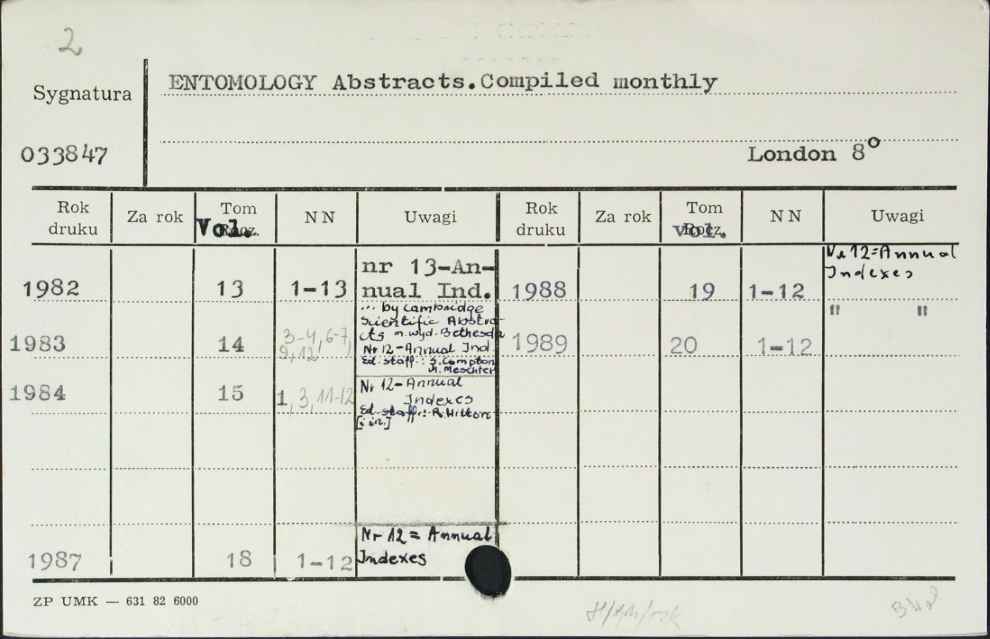 2
Sygnatura
033847
ENTOMOLOGY Abstracts.Compiled monthly
London 8°
Rok druku Za rok Tom Vol. NN Uwagi Rok druku Za rok Tom vol. NN Uwagi
1982 13 1-13 nr 13-An-
nual Ind.
... by Cambridge
Scientific Abstra-
cts m. wyd. Bethesda
1983 14 3-4, 6-7,
9, 12,
Nr 12-Annual Ind.
Ed. staff: S. Compton
1984 15 1, 3, 11-12
Nr 12-Annual
Indexes
Ed. staff: R. Hilton
[i in.]
1987 18 1-12
Nr 12 = Annual
Indexes
1988 19 1-12
Nr 12=Annual
Indexes
1989 20 1-12 " "
ZP UMK — 631 82 6000